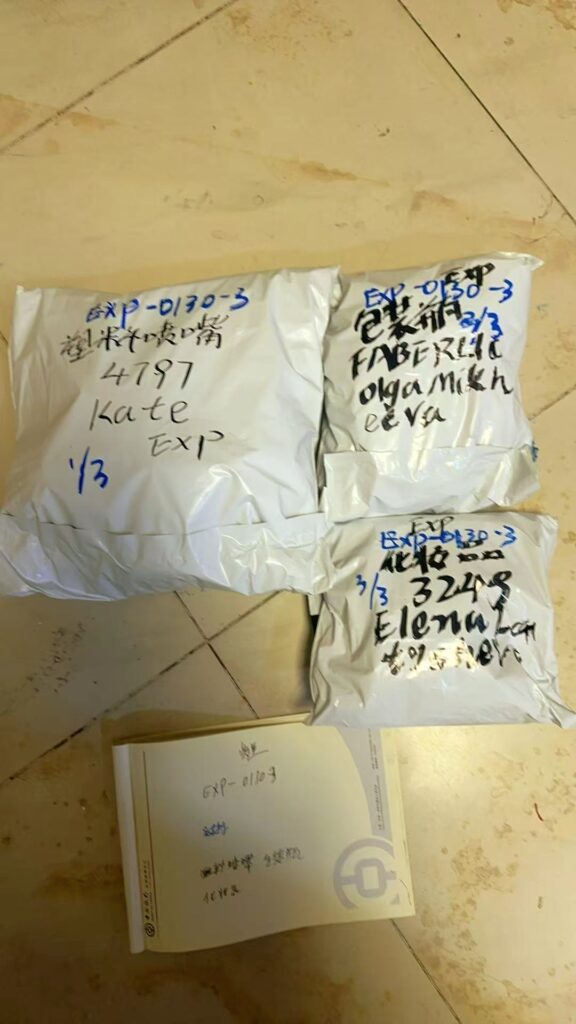 EXP-0130-3
塑料喷嘴
4797
Kate
EXP
1/3
EXP
EXP-0130-3
包装瓶 2/3
FABERLIC
olga Mikh
eeva
EXP
EXP-0130-3
化妆品
3/3 3248
Elena
EXP-0130-3
塑料喷嘴 包装瓶
化妆品